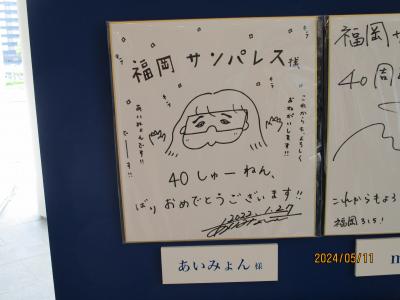 福岡 サンパレス 様
キラ
キラ
これからも、よろしく
おねがいします!!
あいみょんです!!
でーーす!!
40 しゅーねん、
ばり おめでとうございます!!
2022.1.27
あいみょん 様
福岡サ
40周
これからもよろ
福岡
m
2024/05/11